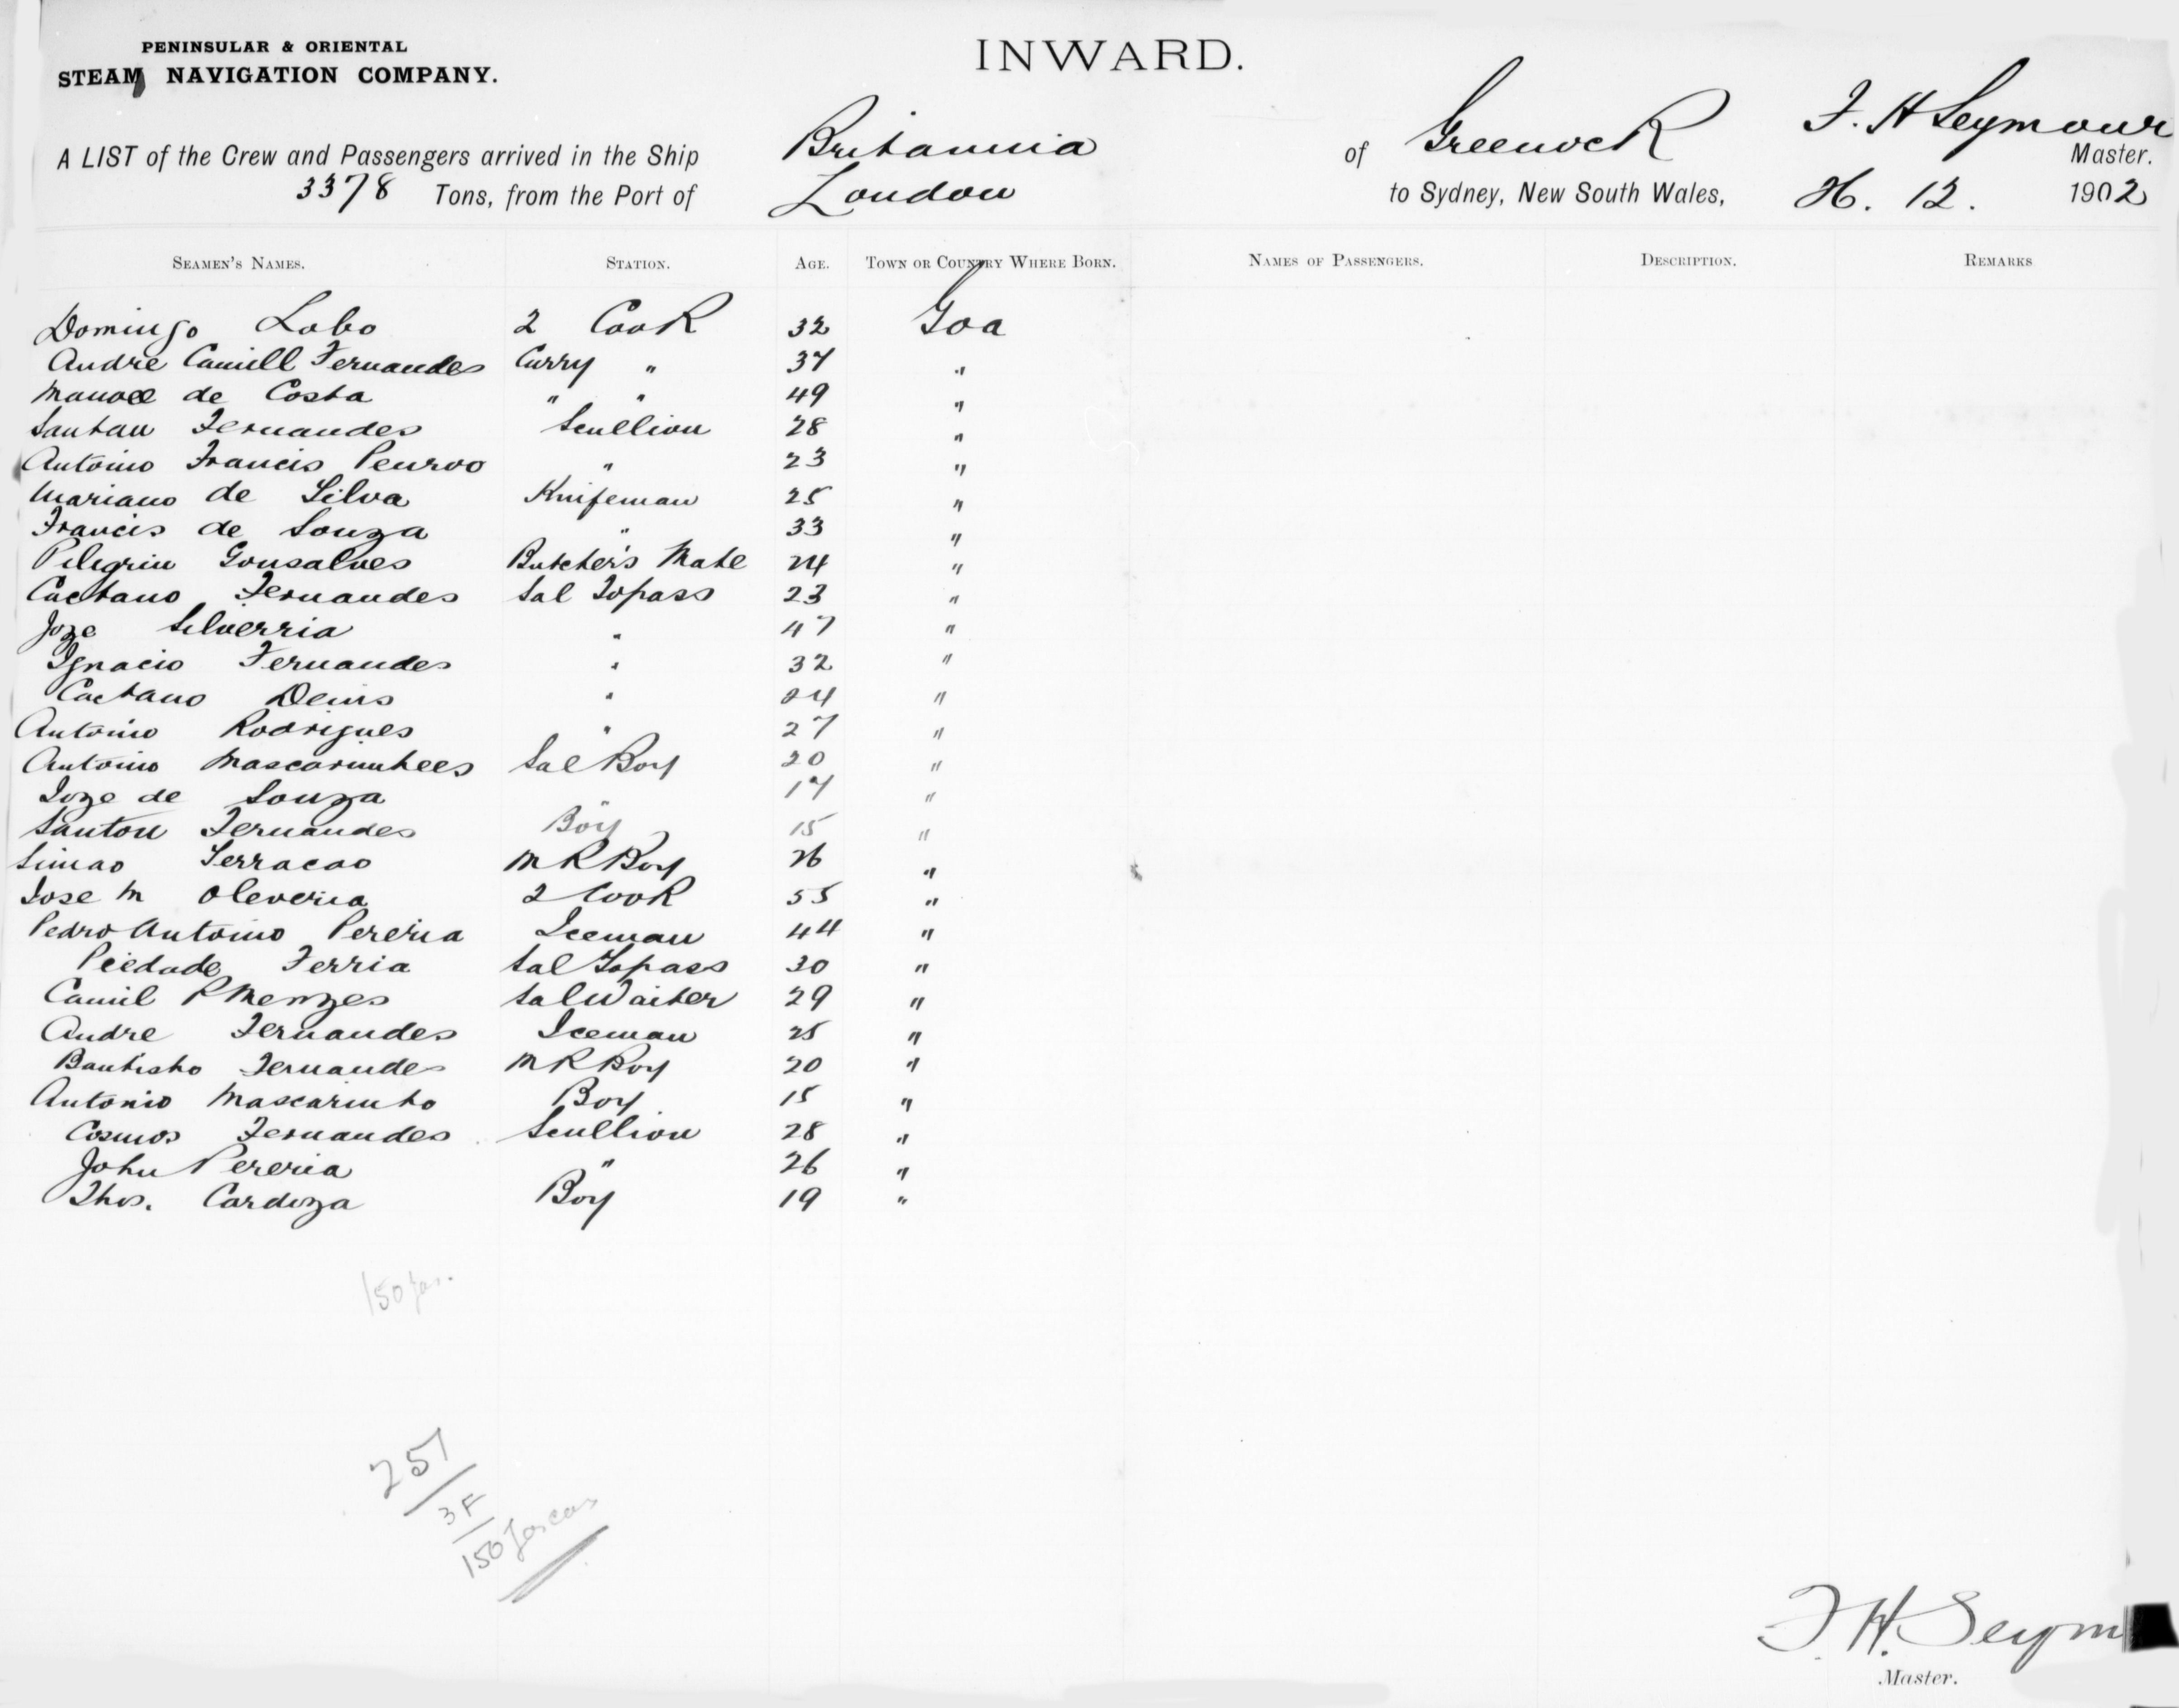 PENINSULAR & ORIENTAL
STEAM NAVIGATION COMPANY.
INWARD.
A LIST of the Crew and Passengers arrived in the Ship Britannia of Greenock F. H Seymour Master.
3378 Tons, from the Port of London to Sydney, New South Wales, 26. 12. 1902
SEAMEN'S NAMES. STATION. AGE. TOWN OR COUNTRY WHERE BORN. NAMES OF PASSENGERS. DESCRIPTION. REMARKS
Domingo Lobo 2 Cook 32 Goa
Andre Camill Fernandes Curry " 37 "
Manoel de Costa " " 49 "
Santan Fernandes Scullion 28 "
Antoino Francis " 23 "
Mariano de Silva Knifeman 25 "
Francis de Souza " 33 "
Pelegrin Gonsalves Butcher's Mate 24 "
Caetano Fernandes Sal Topass 23 "
Joze Silverria " 47 "
Ignacio Fernandes " 32 "
Caetano Denis " 24 "
Antonio Rodrigues " 27 "
Antoino Mascarinhees Sal Boy 20 "
Joze de Souza " 17 "
Santon Fernandes Boy 15 "
Simao Serracao M R Boy 26 "
Jose M Oleveria 2 Cook 55 "
Pedro Antoino Pereria Iceman 44 "
Piedade Ferria Sal Topass 30 "
Camil R Menzes Sal Waiter 29 "
Andre Fernandes Iceman 25 "
Bautisto Fernandes M R Boy 20 "
Antonio Mascarinho Boy 15 "
Cosmos Fernandes Scullion 28 "
John Pereria " 26 "
Thos. Cardoza Boy 19 "
150
257
3 F
150 Lascars
F. H. Seym
Master.